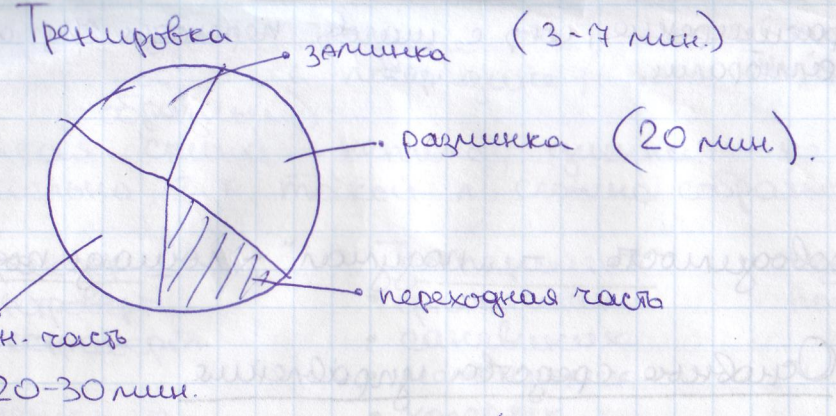 Тренировка
заминка (3-7 мин.)
разминка (20 мин.).
переходная часть
н. часть
20-30 мин.